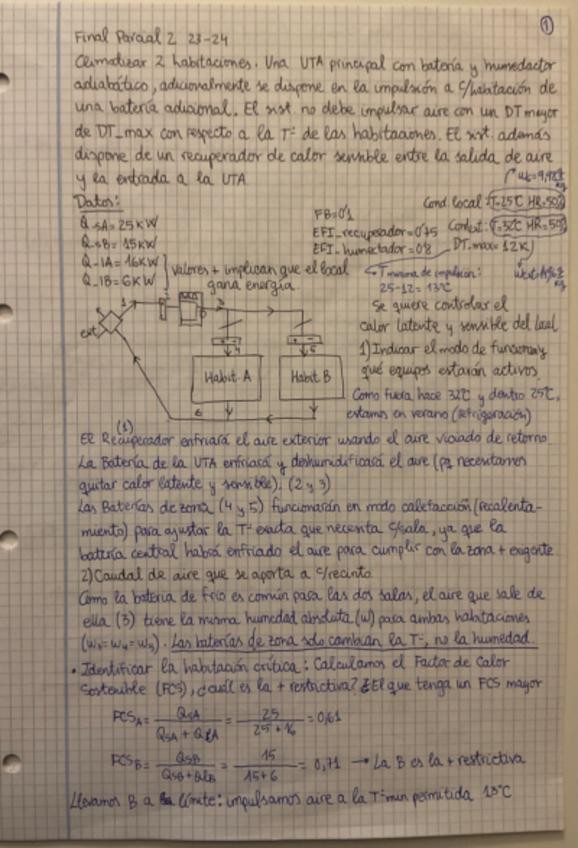 1
Final Parcial 2 23-24
Climatizar 2 habitaciones. Una UTA principal con batería y humedactor
adiabático, adicionalmente se dispone en la impulsión a c/habitación de
una batería adicional. El sist. no debe impulsar aire con un DT mayor
de DT_max con respecto a la Tª de las habitaciones. El sist. además
dispone de un recuperador de calor sensible entre la salida de aire
y la entrada a la UTA
Datos:
Q_SA = 25 KW
Q_SB = 15 KW
Q_lA = 16 KW
Q_lB = 6 KW
valores + implican que el local
gana energía
FB = 0'1
EFI_recuperador = 0'75
EFI_humectador = 0'8
Cond. local: T=25ºC HR=50%
Cond. ext: T=32ºC HR=50%
DT_max = 12K
Tª mínima de impulsión:
25-12 = 13ºC
ext
1
2
3
4
5
6
Habit A
Habit B
Se quiere controlar el
calor latente y sensible del local
1) Indicar el modo de funcion y
qué equipos estarán activos
Como fuera hace 32ºC y dentro 25ºC,
estamos en verano (refrigeración)
(1)
El Recuperador enfriará el aire exterior usando el aire viciado de retorno
La Batería de la UTA enfriará y deshumidificará el aire (pq necesitamos
quitar calor latente y sensible). (2 y 3)
Las Baterías de zona (4 y 5) funcionarán en modo calefacción (recalenta-
miento) para ajustar la Tª exacta que necesita c/sala, ya que la
batería central habrá enfriado el aire para cumplir con la zona + exigente
2) Caudal de aire que se aporta a c/recinto
Como la batería de frío es común para las dos salas, el aire que sale de
ella (3) tiene la misma humedad absoluta (w) para ambas habitaciones
(w₃=w₄=w₅). Las baterías de zona solo cambian la Tª, no la humedad.
• Identificar la habitación crítica: Calculamos el Factor de Calor
Sostenible (FCS), ¿cuál es la + restrictiva? El que tenga un FCS mayor
FCS_A = Q_SA / (Q_SA + Q_lA) = 25 / (25 + 16) = 0,61
FCS_B = Q_SB / (Q_SB + Q_lB) = 15 / (15 + 6) = 0,71 → La B es la + restrictiva
Llevamos B a límite: impulsamos aire a la Tª min permitida 13ºC